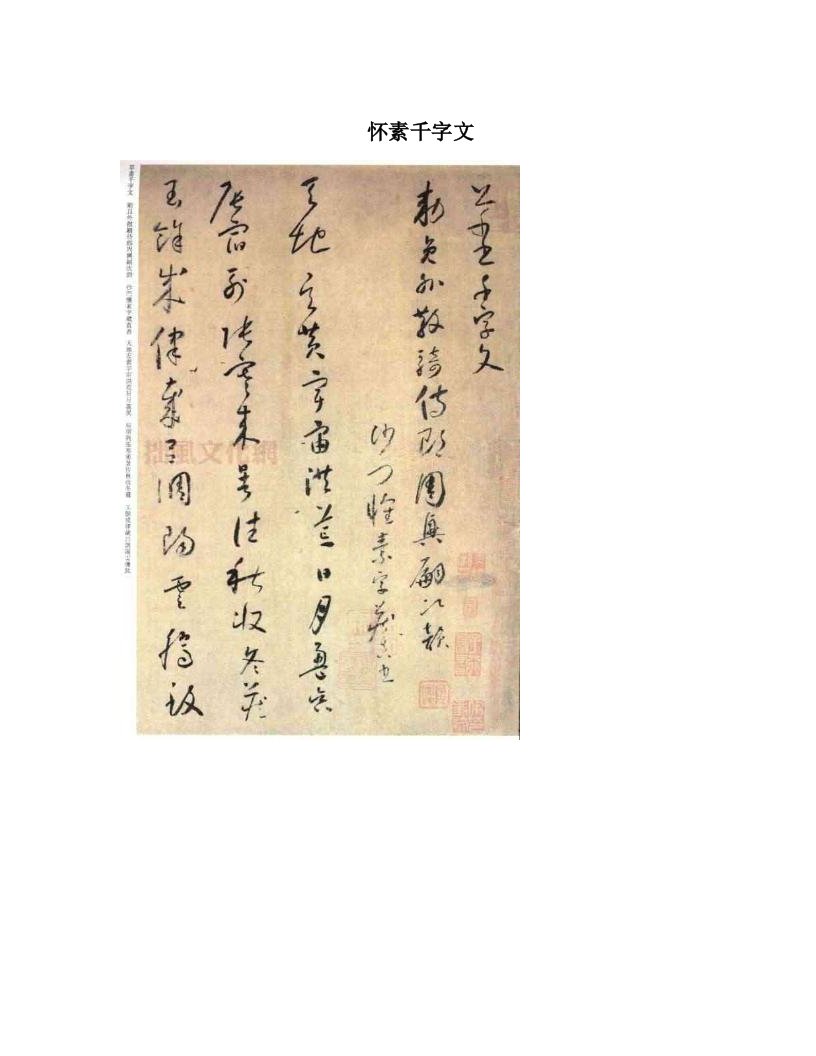 怀素千字文
草書千字文
勅員外散騎侍郎周興嗣次韻
沙門懷素字藏真書
天地玄黃宇宙洪荒日月盈昃
辰宿列張寒來暑往秋收冬藏
餘成律歲呂調陽雲騰致
拙風文化網